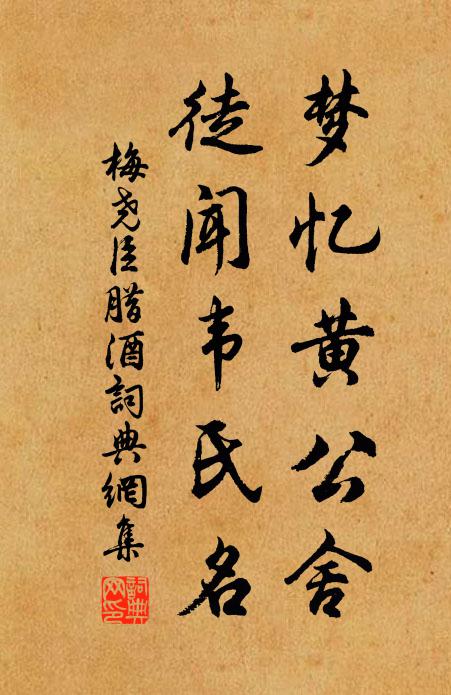 梦忆黄公舍
徒闻韦氏名
梅尧臣腊酒詞典網集
詞典网印